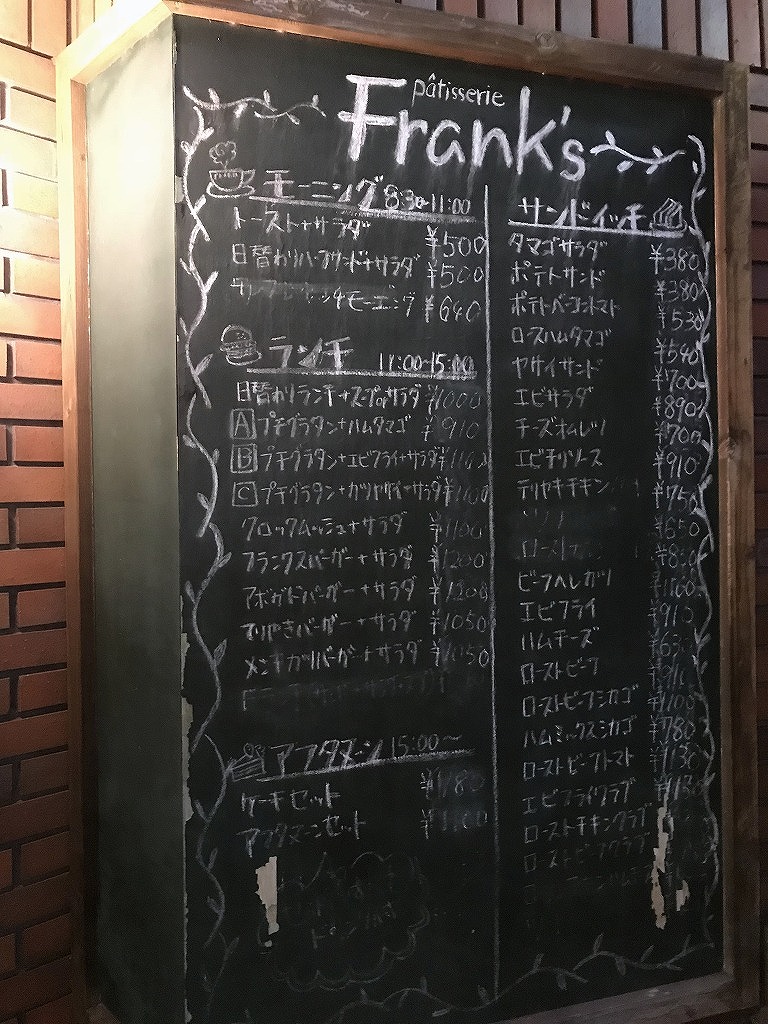 pâtisserie
Frank's
モーニング 8:30~11:00
トースト+サラダ ¥500
日替わりハーフサンド+サラダ ¥500
モーニング ¥640
ランチ 11:00~15:00
日替わりランチ+スープorサラダ ¥1000
A プチグラタン+ハムタマゴ ¥910
B プチグラタン+エビフライ+サラダ ¥1100
C プチグラタン+カツヤサイ+サラダ ¥1100
クロックムッシュ+サラダ ¥1100
フランクスバーガー+サラダ ¥1200
アボガドバーガー+サラダ ¥1200
てりやきバーガー+サラダ ¥1050
メンチカツバーガー+サラダ ¥1050
アフタヌーン 15:00~
ケーキセット
アフタヌーンセット ¥1100
サンドイッチ
タマゴサラダ ¥380
ポテトサンド ¥380
ポテトベーコントマト ¥530
ロースハムタマゴ ¥540
ヤサイサンド ¥700
エビサラダ ¥890
チーズオムレツ ¥700
エビチリソース ¥910
テリヤキチキン ¥750
¥650
ビーフヘレカツ ¥1100
エビフライ ¥910
ハムチーズ ¥630
ローストビーフ ¥910
ローストビーフシカゴ ¥1100
ハムミックスシカゴ ¥780
ローストビーフトマト ¥1130
エビフライクラブ
ローストチキンクラブ
ローストビーフクラブ